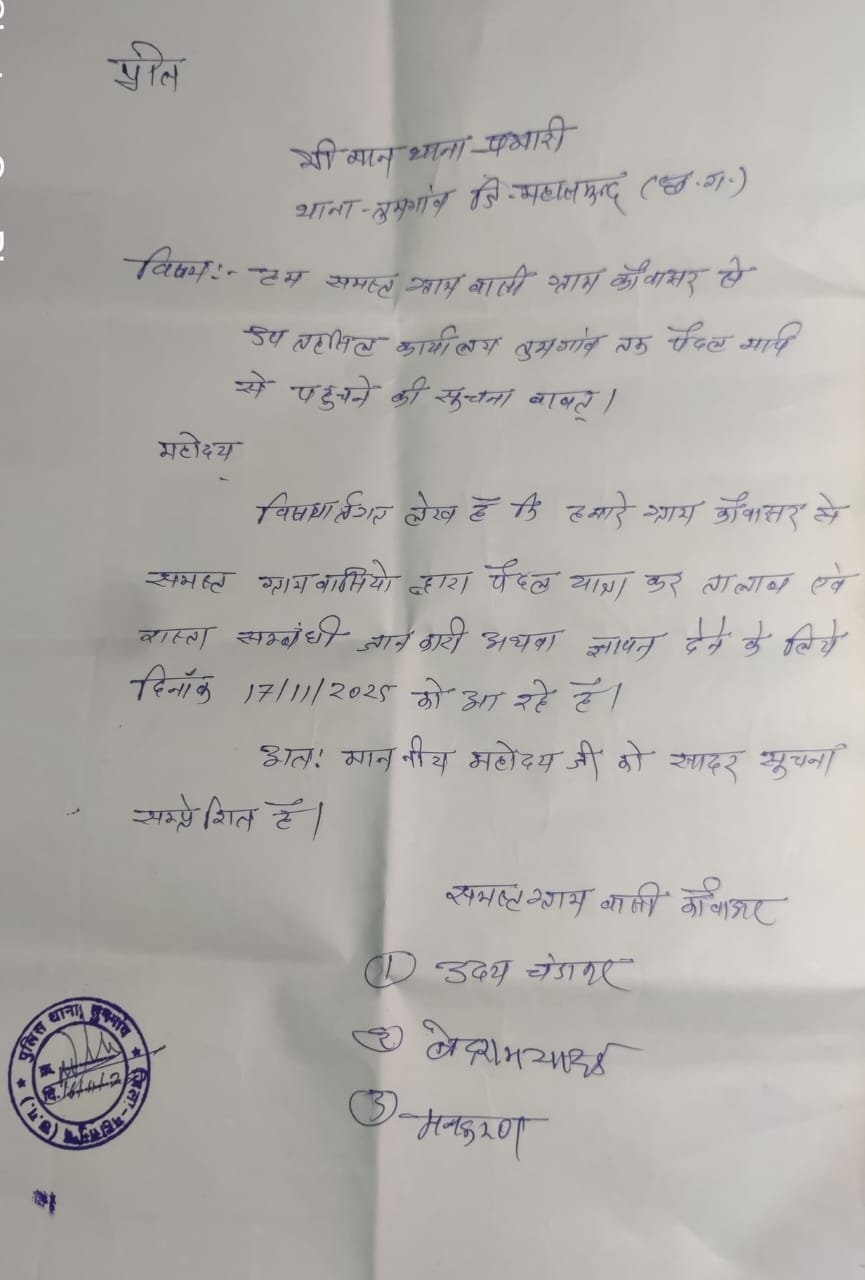 प्रति
श्री मान थाना प्रभारी
थाना-तुमगांव जि-महासमुन्द (छ.ग.)
विषय:- हम समस्त ग्राम वासी ग्राम कौवाझर से
उप तहसिल कार्यालय तुमगांव तक पैदल मार्च
से पहुचने की सूचना बाबत्।
महोदय
विषयार्न्तगत लेख है कि हमारे ग्राम कौवाझर से
समस्त ग्रामवासियो द्वारा पैदल यात्रा कर तालाब एवं
रास्ता सम्बंधी जानकारी अथवा ज्ञापन देने के लिये
दिनाँक 17/11/2025 को आ रहे है।
अत: माननीय महोदय जी को सादर सूचना
सम्प्रेशित है।
समस्त ग्राम वासी कौवाझर
① उदय चंद्राकर
②
③ मनहरण
पुलिस थाना तुमगांव
जिला-महासमुन्द (छ.ग.)
दि.